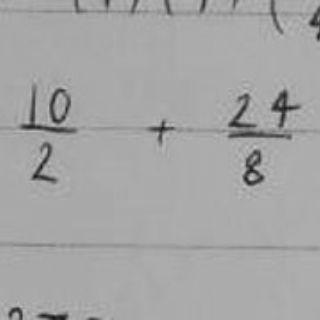 10/2 + 24/8